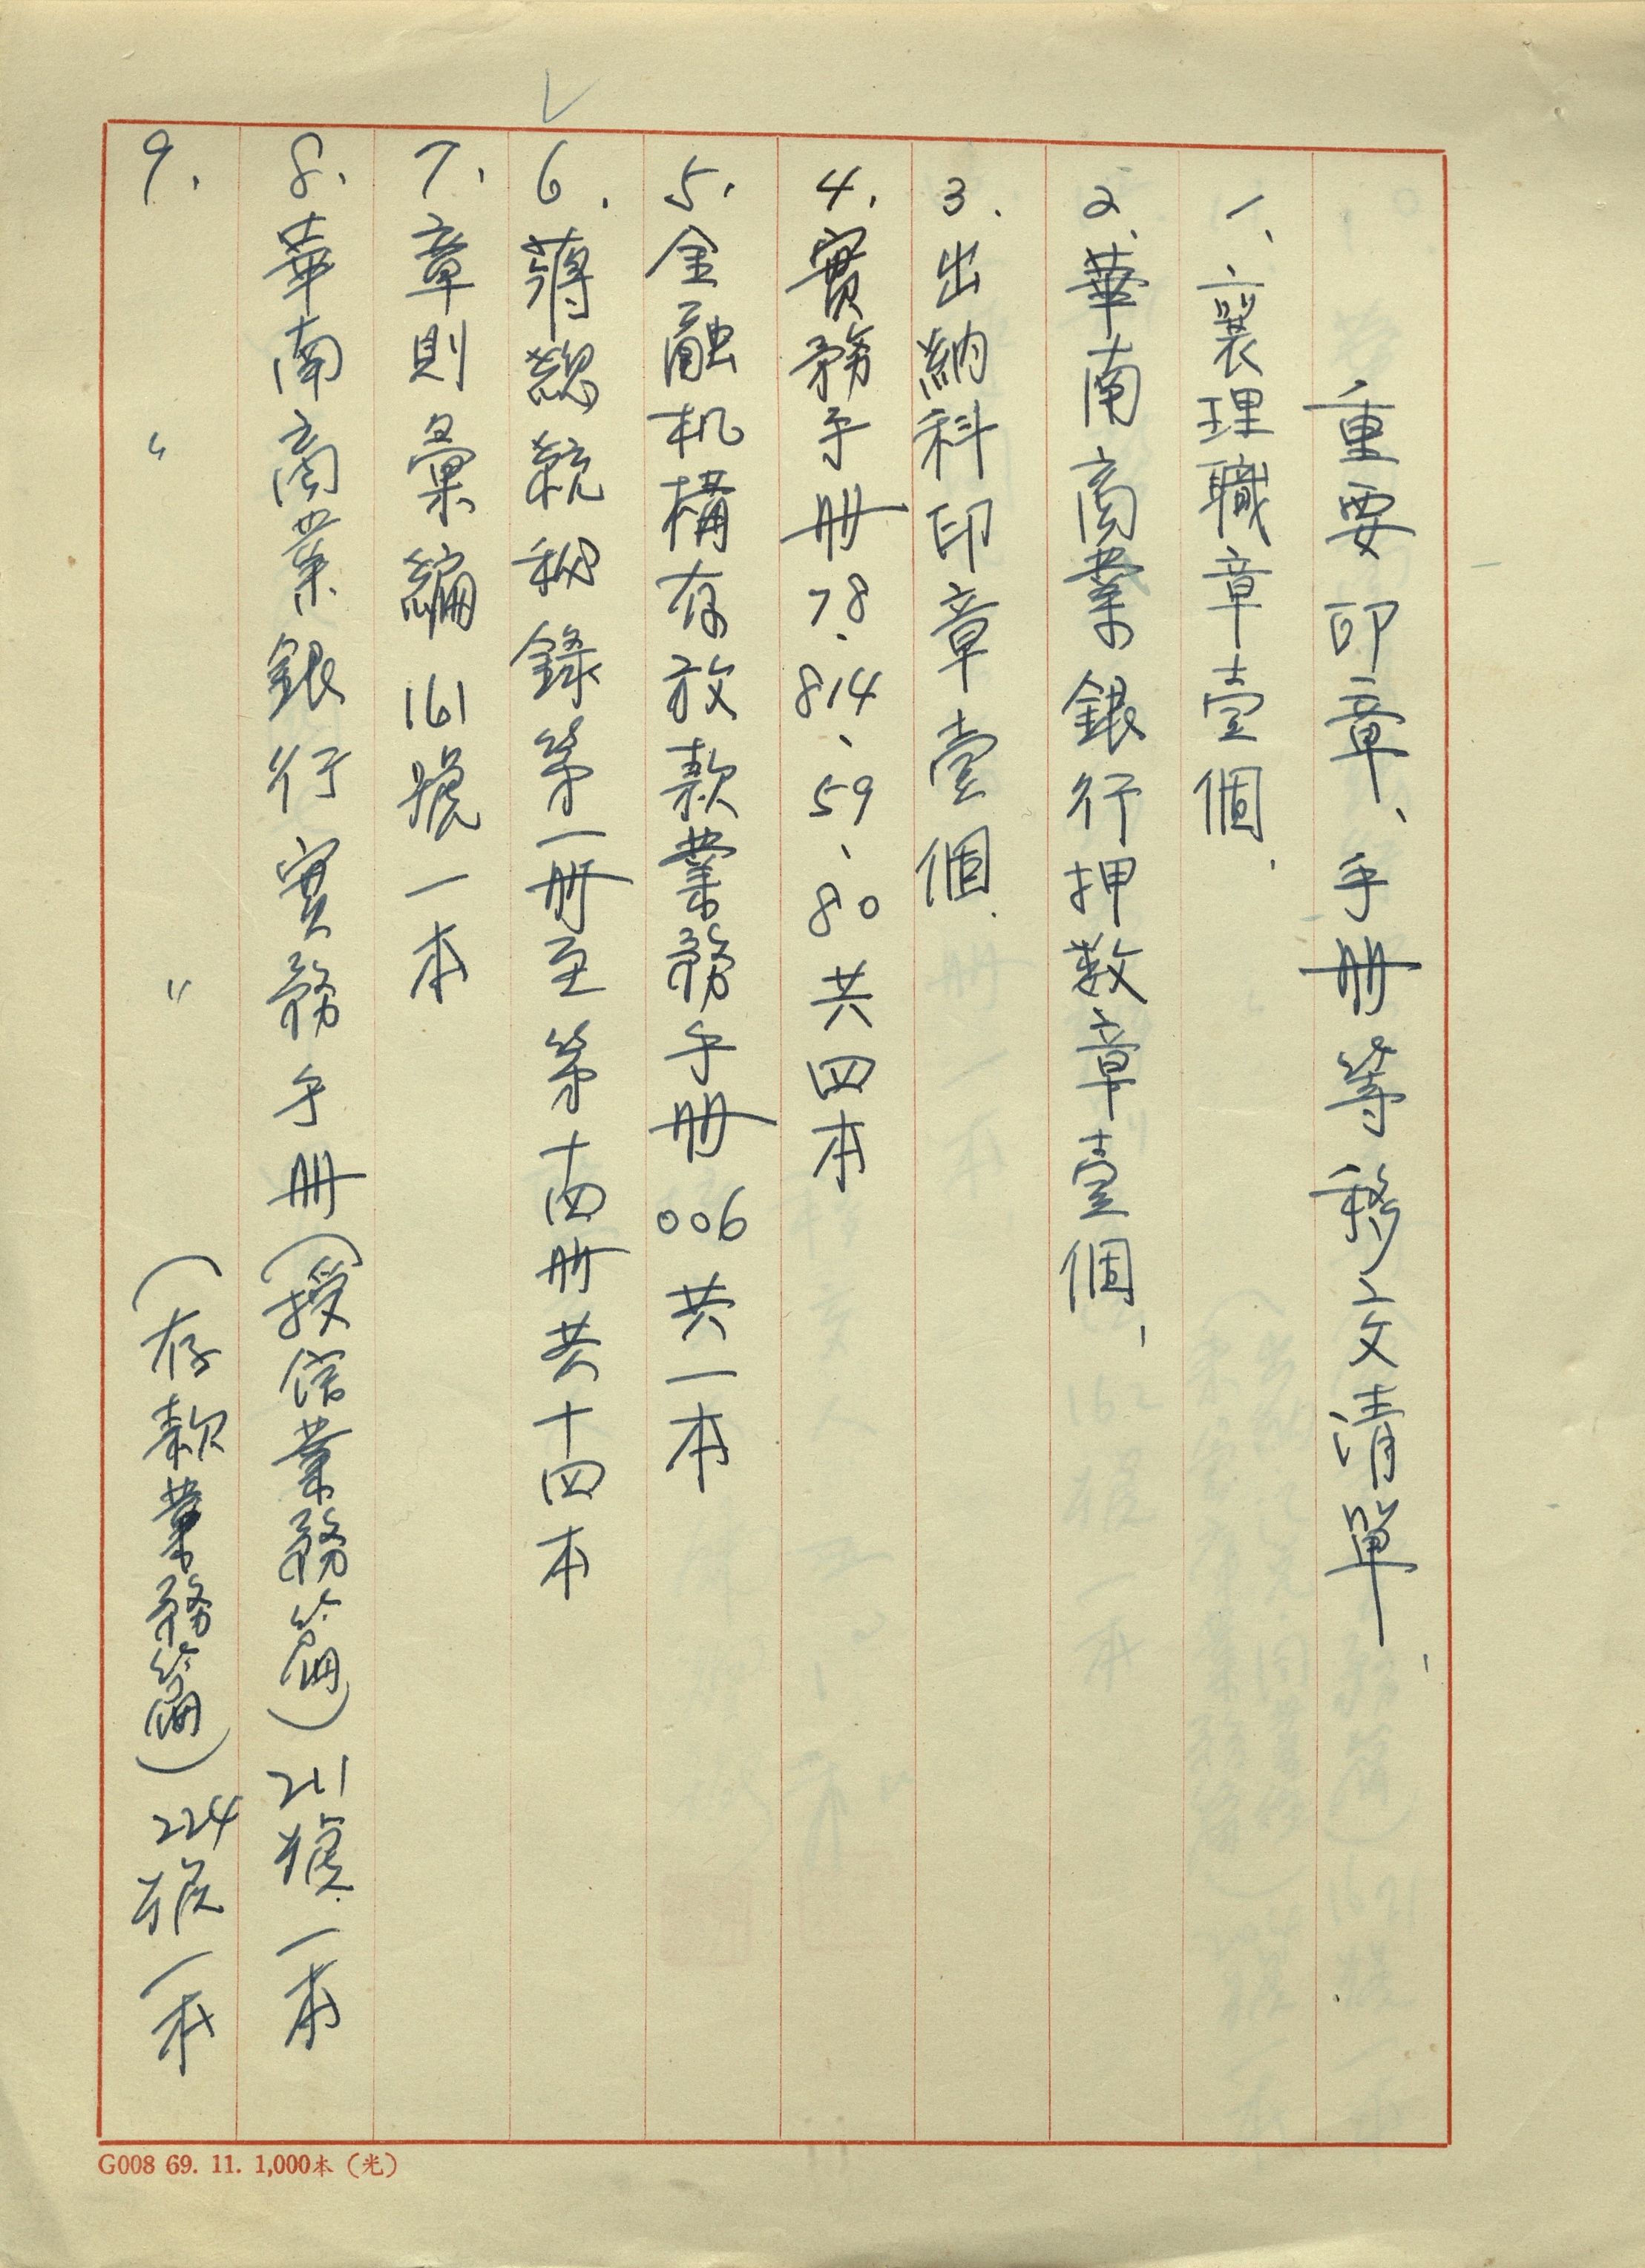 重要印章、手册等移交清單
1、襄理職章壹個.
2、華南商業銀行押数章壹個.
3.出納科印章壹個.
4.實務手册78、814、59、80共四本
5.金融机構存放款業務手册006共一本
6.蔣總統秘錄第一册至第十四册共十四本
7.章則彙編161號一本
8.華南商業銀行實務手册(授信業務篇)211號一本
9. 〃 〃 (存款業務篇)224號一本
G008 69. 11. 1,000本(光)